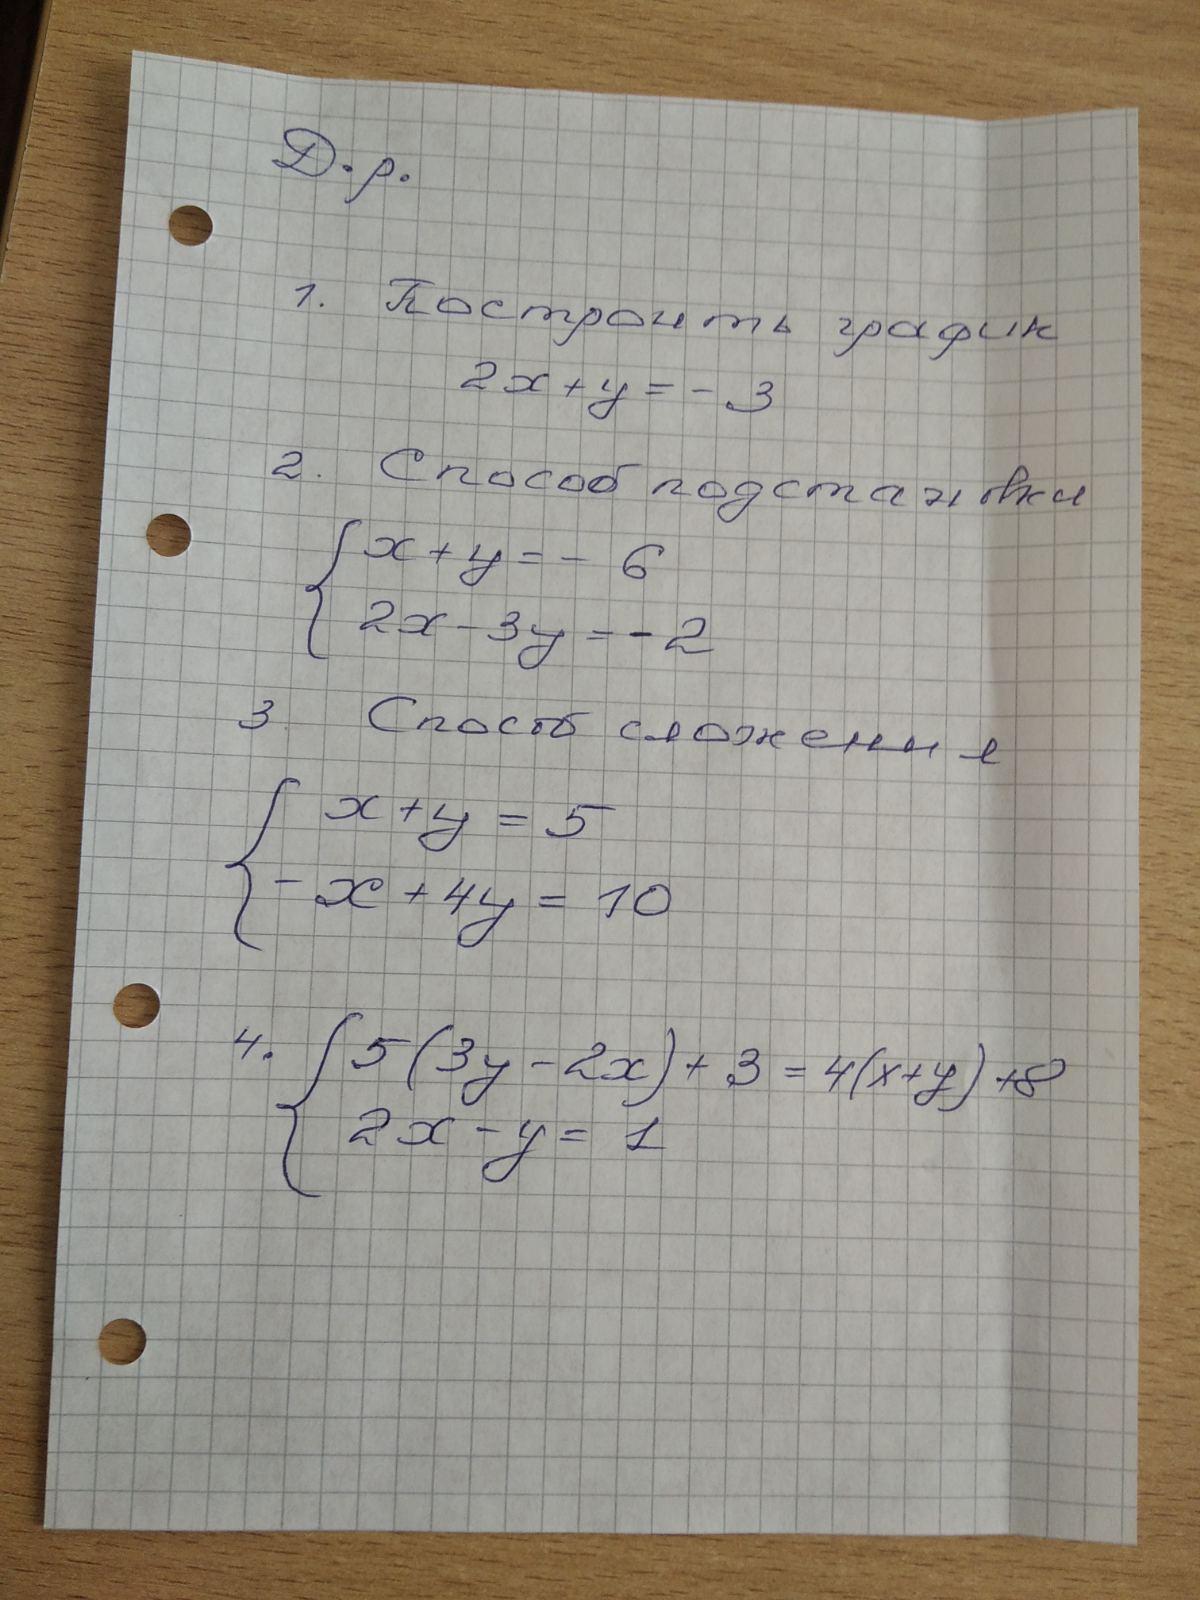 Д.р.
1. Построить график
2x+y=-3
2. Способ подстановки
x+y=-6
2x-3y=-2
3. Способ сложения
x+y=5
-x+4y=10
4. 5(3y-2x)+3=4(x+y)+8
2x-y=1